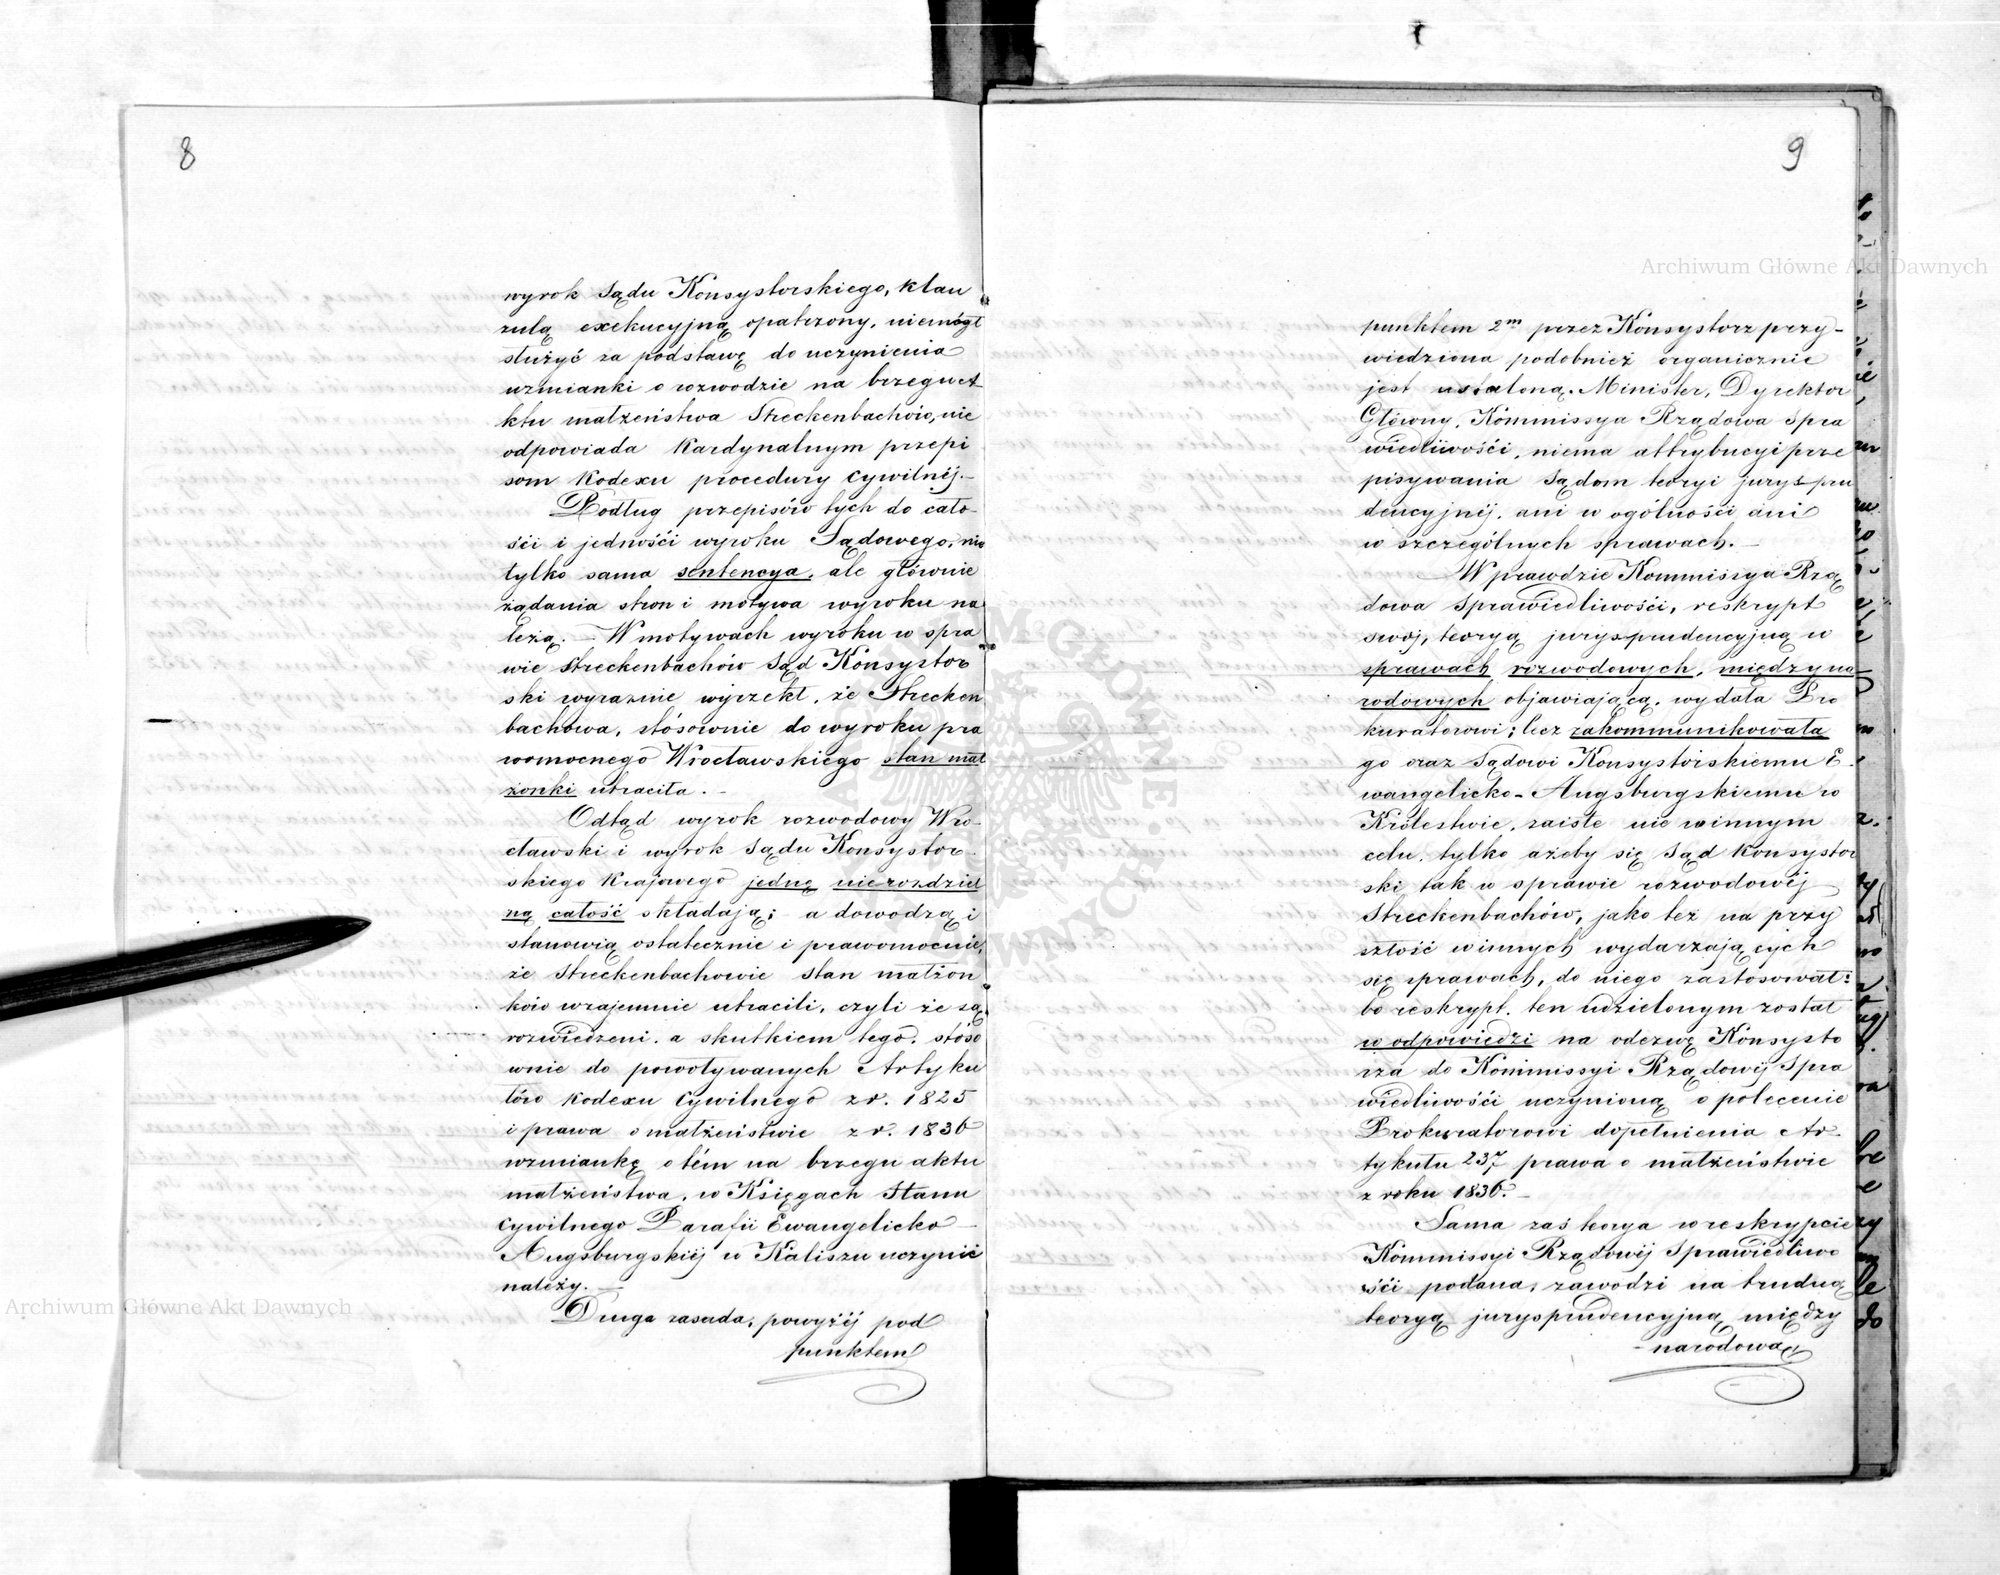 8
wyrok Sądu Konsystorskiego, klau
zulą exekucyjną opatrzony, niemógł
służyć za podstawę do uczynienia
wzmianki o rozwodzie na brzegu A
ktu małżeństwa Streckenbachów, nie
odpowiada Kardynalnym przepi
som Kodexu procedury Cywilnéj.—
Podług przepisów tych do cało-
ści i jedności wyroku Sądowego, nie
tylko sama sentencya, ale głównie
żądania stron i motywa wyroku na
leżą. — W motywach wyroku w spra
wie Streckenbachów Sąd Konsystor
ski wyraźnie wyrzekł, że Strecken
bachowa, stósownie do wyroku pra
womocnego Wrocławskiego stan mał
żonki utraciła. —
Odtąd wyrok rozwodowy Wro-
cławski i wyrok Sądu Konsystor-
skiego Krajowego jednę nierozdziel
ną całość składają; a dowodzą i
stanowią ostatecznie i prawomocnie,
że Streckenbachowie stan małżon
ków wzajemnie utracili, czyli że są
rozwiedzeni. a skutkiem tego, stóso
wnie do powoływanych Artyku
łów Kodexu Cywilnego z r. 1825
i prawa o małżeństwie z r. 1836
wzmiankę o tém na brzegu aktu
małżeństwa, w Księgach Stanu
Cywilnego Parafii Ewangelicko —
Augsburgskiéj w Kaliszu uczynić
należy. —
Druga zasada, powyżéj pod
punktem
9
punktem 2m przez Konsystorz przy-
wiedziona podobnież organicznie
jest ustaloną. Minister, Dyrektor
Główny, Kommissya Rządowa Spra
wiedliwości, niema attrybucyi prze
pisywania Sądom teoryi jurys-pru
dencyjnéj, ani w ogólności ani
w szczególnych sprawach. —
Wprawdzie Kommissya Rzą
dowa Sprawiedliwości, reskrypt
swój, teoryą jurysprudencyjną w
sprawach rozwodowych, międzyna
rodowych objawiającą, wydała Pro
kuratorowi; lecz zakommunikowała
go oraz Sądowi Konsystorskiemu E-
wangelicko-Augsburgskiemu w
Królestwie, zaiste nie w innym
celu, tylko ażeby się Sąd Konsystor
ski tak w sprawie rozwodowéj
Streckenbachów, jako też na przy
szłość w innych wydarzających
się sprawach, do niego zastosował:
bo reskrypt ten udzielonym został
w odpowiedzi na odezwę Konsysto
rza do Kommissyi Rządowéj Spra
wiedliwości uczynioną o polecenie
Prokuratorowi dopełnienia Ar-
tykułu 237 prawa o małżeństwie
z roku 1836. —
Sama zaś teorya w reskrypcie
Kommissyi Rządowéj Sprawiedliwo
ści podana, zawodzi na trudną
teoryą jurysprudencyjną między
-narodową,
Archiwum Główne Akt Dawnych
Archiwum Główne Akt Dawnych
ARCHIWUM GŁÓWNE AKT DAWNYCH